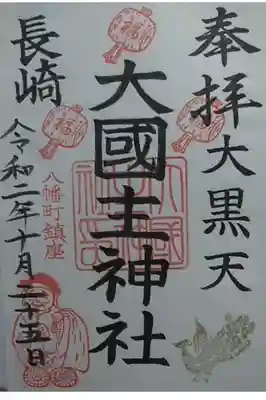 奉拝大黒天
大國主神社
長崎
八幡町鎮座
令和二年十月二十五日